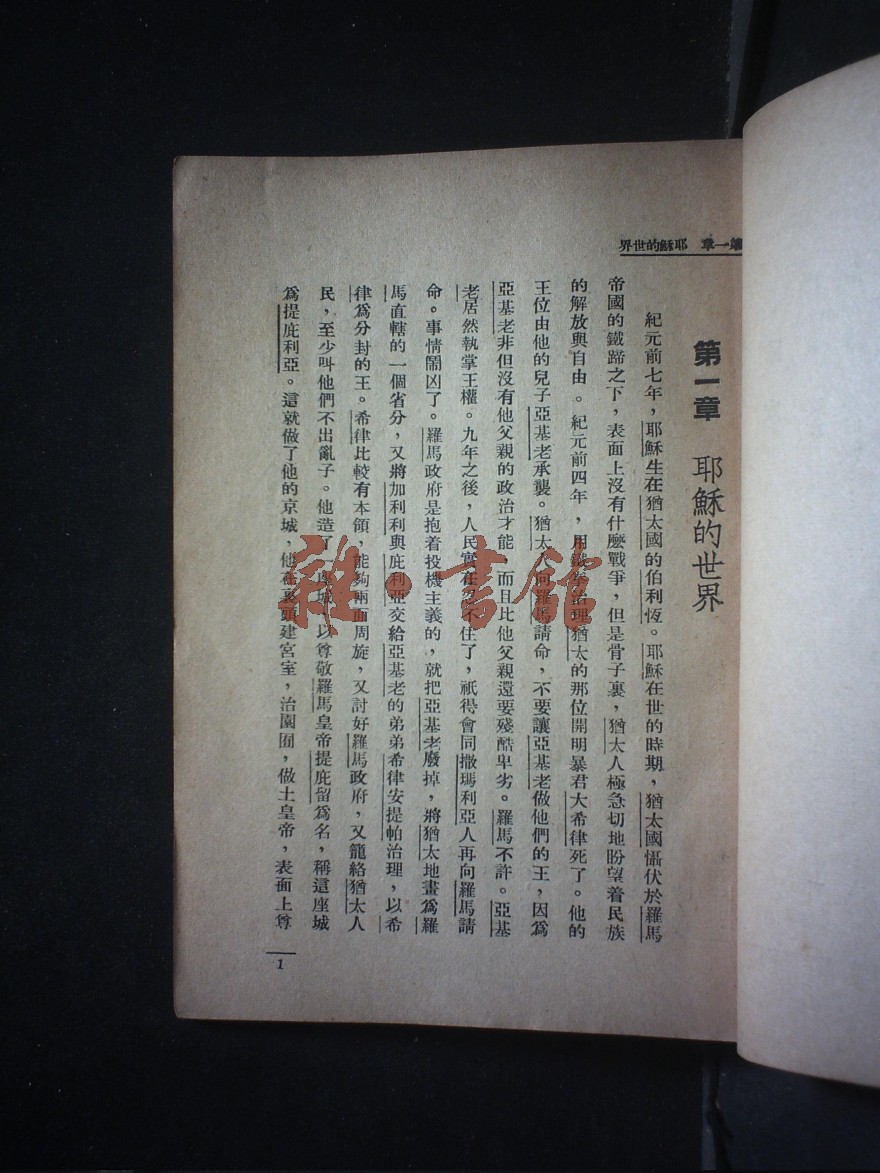 第一章 耶穌的世界
第一章 耶穌的世界
紀元前七年，耶穌生在猶太國的伯利恆。耶穌在世的時期，猶太國懾伏於羅馬
帝國的鐵蹄之下，表面上沒有什麼戰爭，但是骨子裏，猶太人極急切地盼望着民族
的解放與自由。紀元前四年，用鐵拳治理猶太的那位開明暴君大希律死了。他的
王位由他的兒子亞基老承襲。猶太人向羅馬請命，不要讓亞基老做他們的王，因為
亞基老非但沒有他父親的政治才能，而且比他父親還要殘酷卑劣。羅馬不許。亞基
老居然執掌王權。九年之後，人民實在忍不住了，祇得會同撒瑪利亞人再向羅馬請
命。事情鬧凶了。羅馬政府是抱着投機主義的，就把亞基老廢掉，將猶太地畫為羅
馬直轄的一個省分，又將加利利與庇利亞交給亞基老的弟弟希律安提帕治理，以希
律為分封的王。希律比較有本領，能夠兩面周旋，又討好羅馬政府，又籠絡猶太人
民，至少叫他們不出亂子。他造了一座城，以尊敬羅馬皇帝提庇留為名，稱這座城
為提庇利亞。這就做了他的京城，他在裏頭建宮室，治園囿，做土皇帝，表面上尊
1
雜·書館